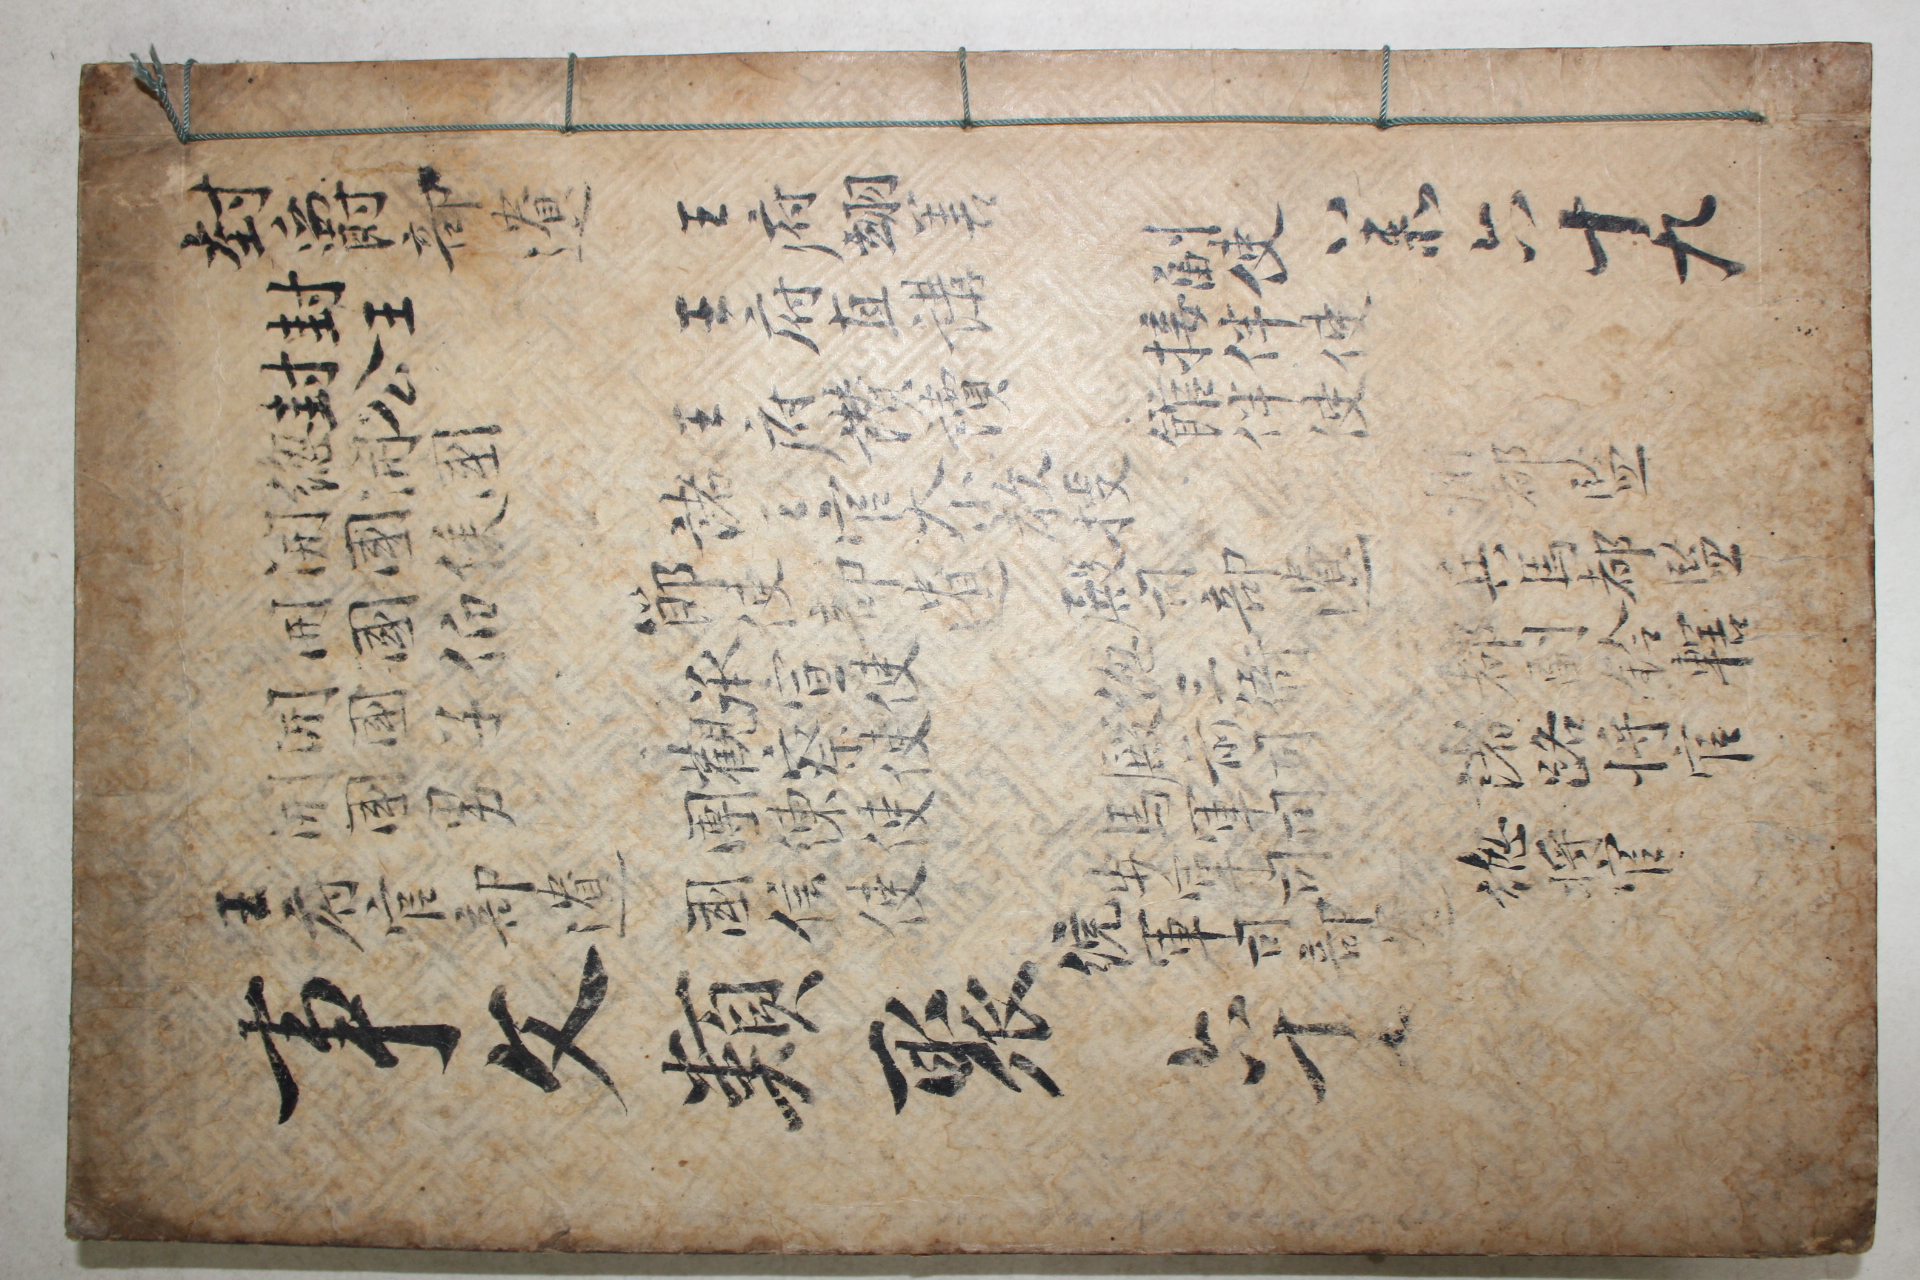 封爵部遺
封王
封公
總開國
開國侯
開國伯
開國子
開國男
王府官部遺
王府翊善
王府直講
王府讚讀
諸王官大小教授
節使部遺
承宣使
觀察使
團練使
國信使
副使
接伴使
館伴使
殿司部遺
總三衙
殿前司
馬軍司
步軍司
統軍司部
州都監
兵馬都監
都副鈐轄
諸路將官
總將官
共六十九
事文類聚
六十